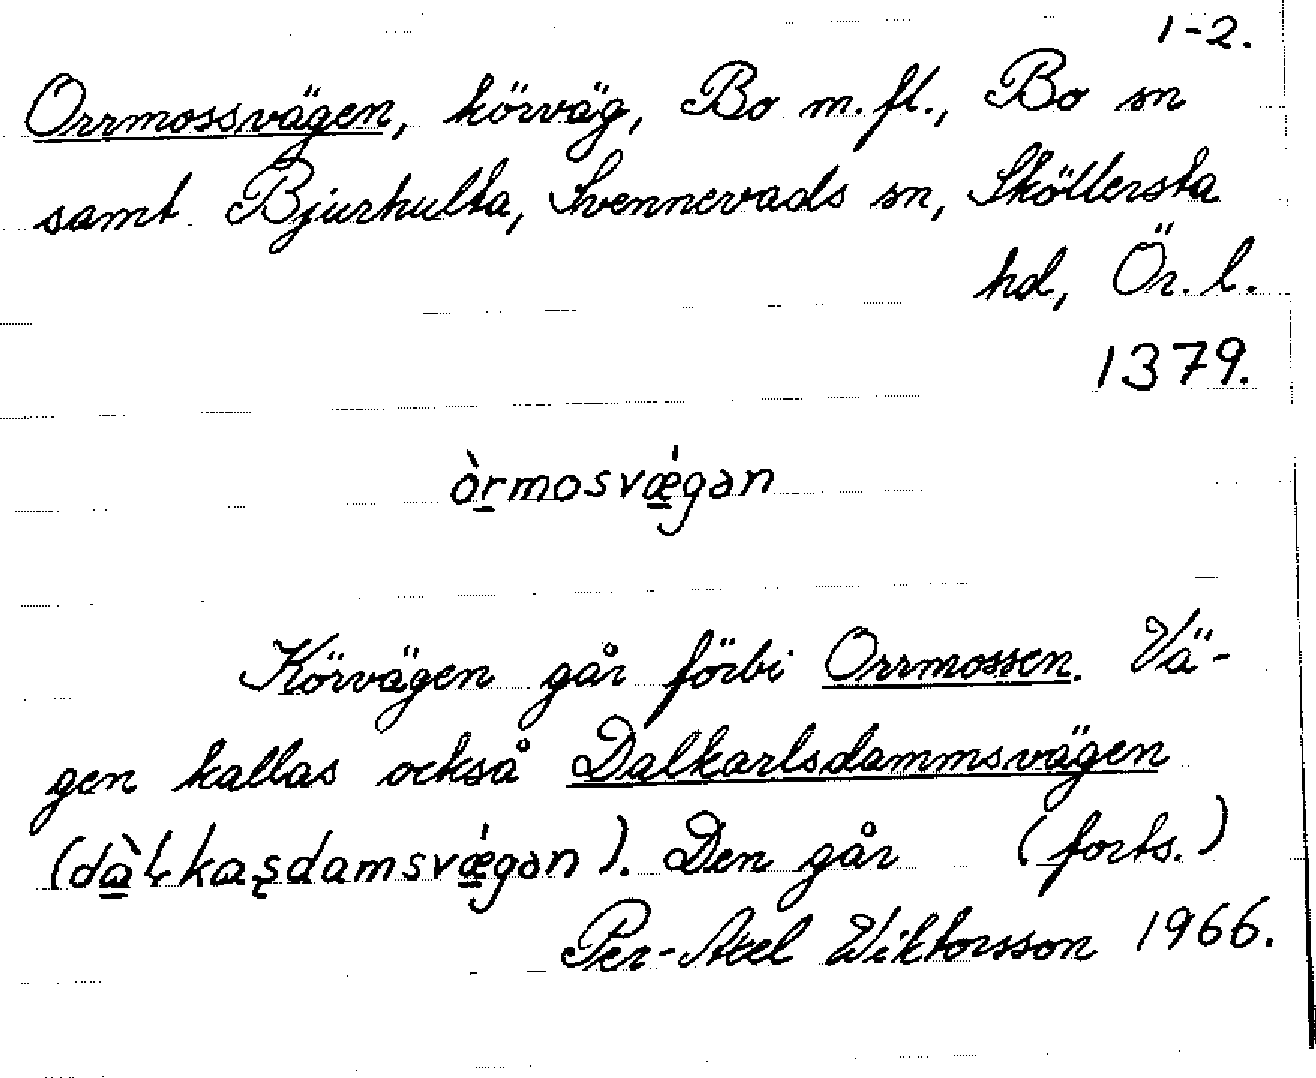 1-2.
Orrmossvägen, körväg, Bo m.fl., Bo sn
samt Bjurhulta, Svennevads sn, Sköllersta
hd, Ör. l.
1379.
òr̲mosvǽ̲gən
Körvägen går förbi Orrmossen. Vä-
gen kallas också Dalkarlsdammsvägen
(dà̲ɫkaʂdamsvǽ̲gən). Den går (forts.)
Per-Axel Wiktorsson 1966.